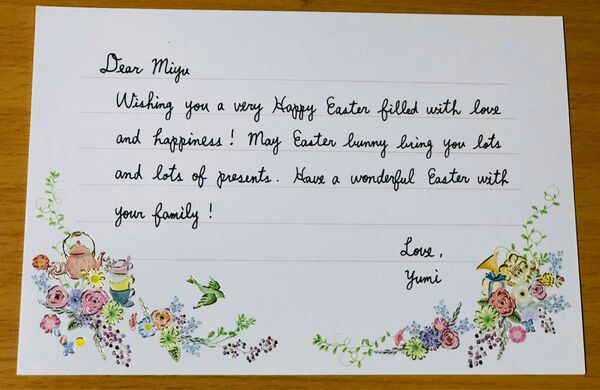 Dear Miyu
Wishing you a very Happy Easter filled with love
and happiness! May Easter bunny bring you lots
and lots of presents. Have a wonderful Easter with
your family!
Love,
Yumi